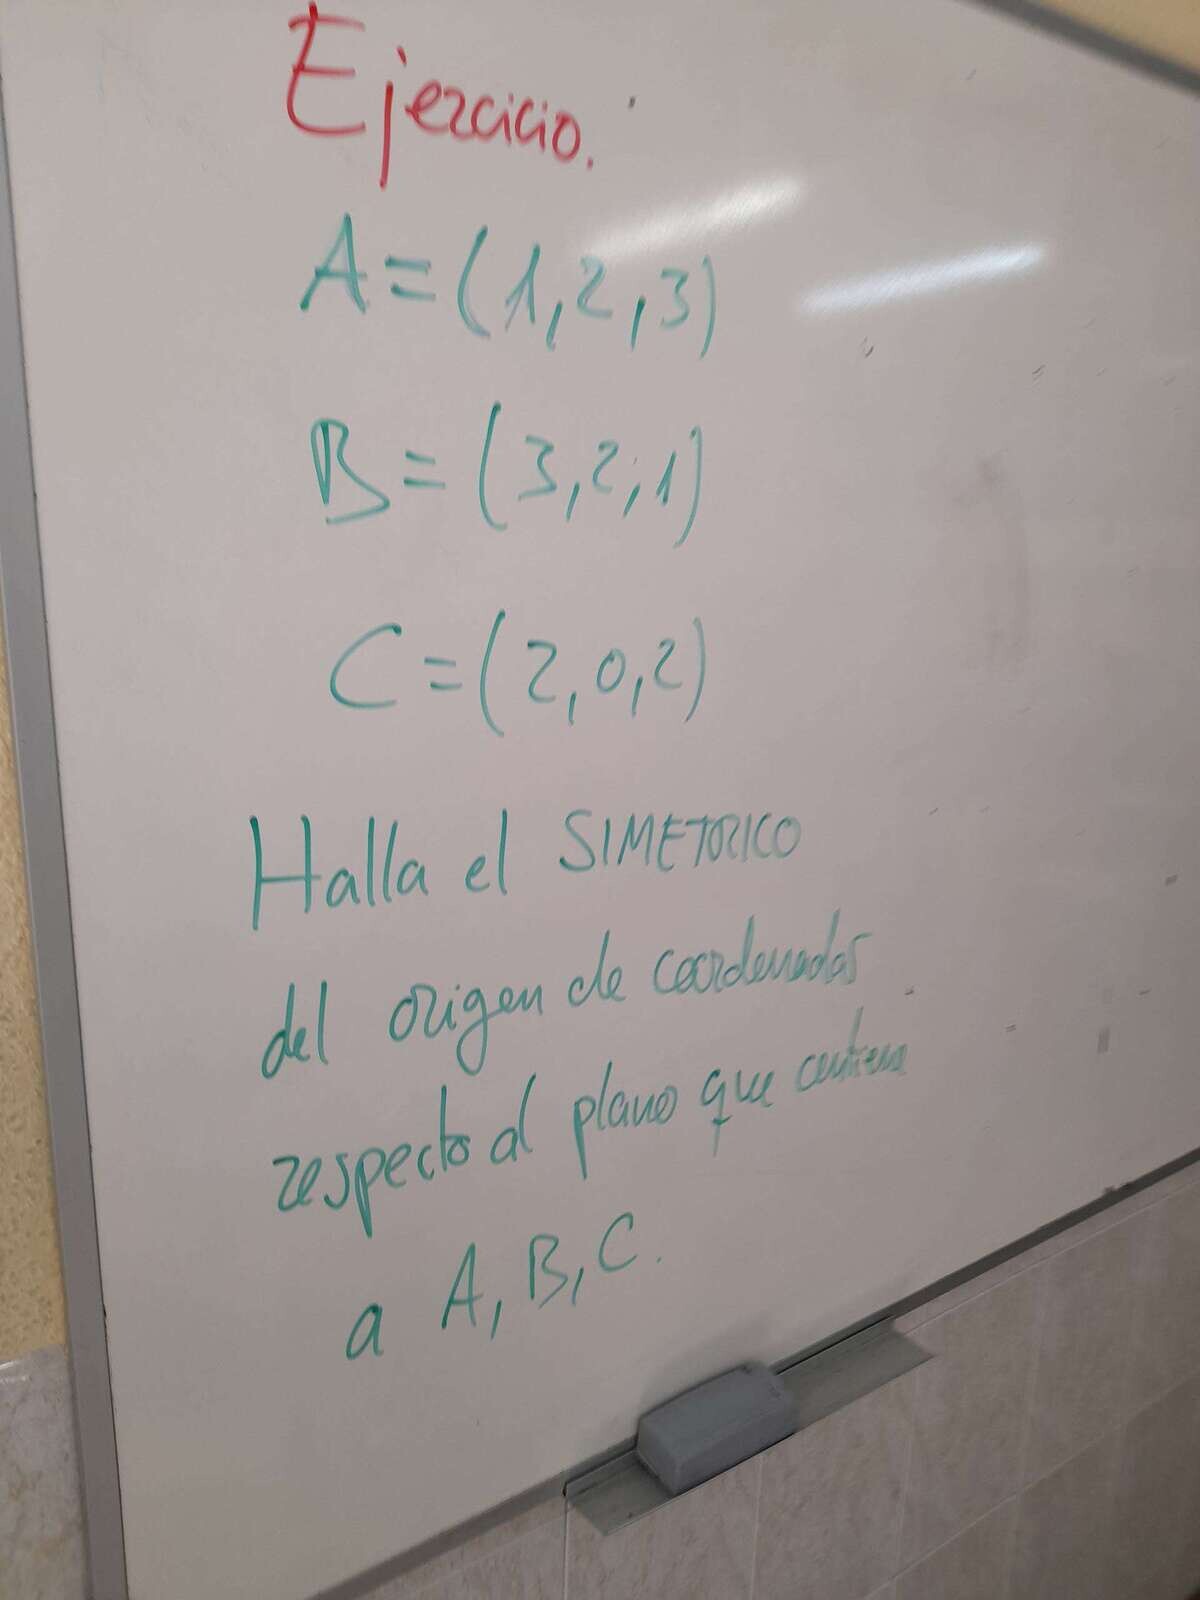 Ejercicio.
A = (1, 2, 3)
B = (3, 2, 1)
C = (2, 0, 2)
Halla el SIMETRICO
del origen de coordenadas
respecto al plano que contiene
a A, B, C.